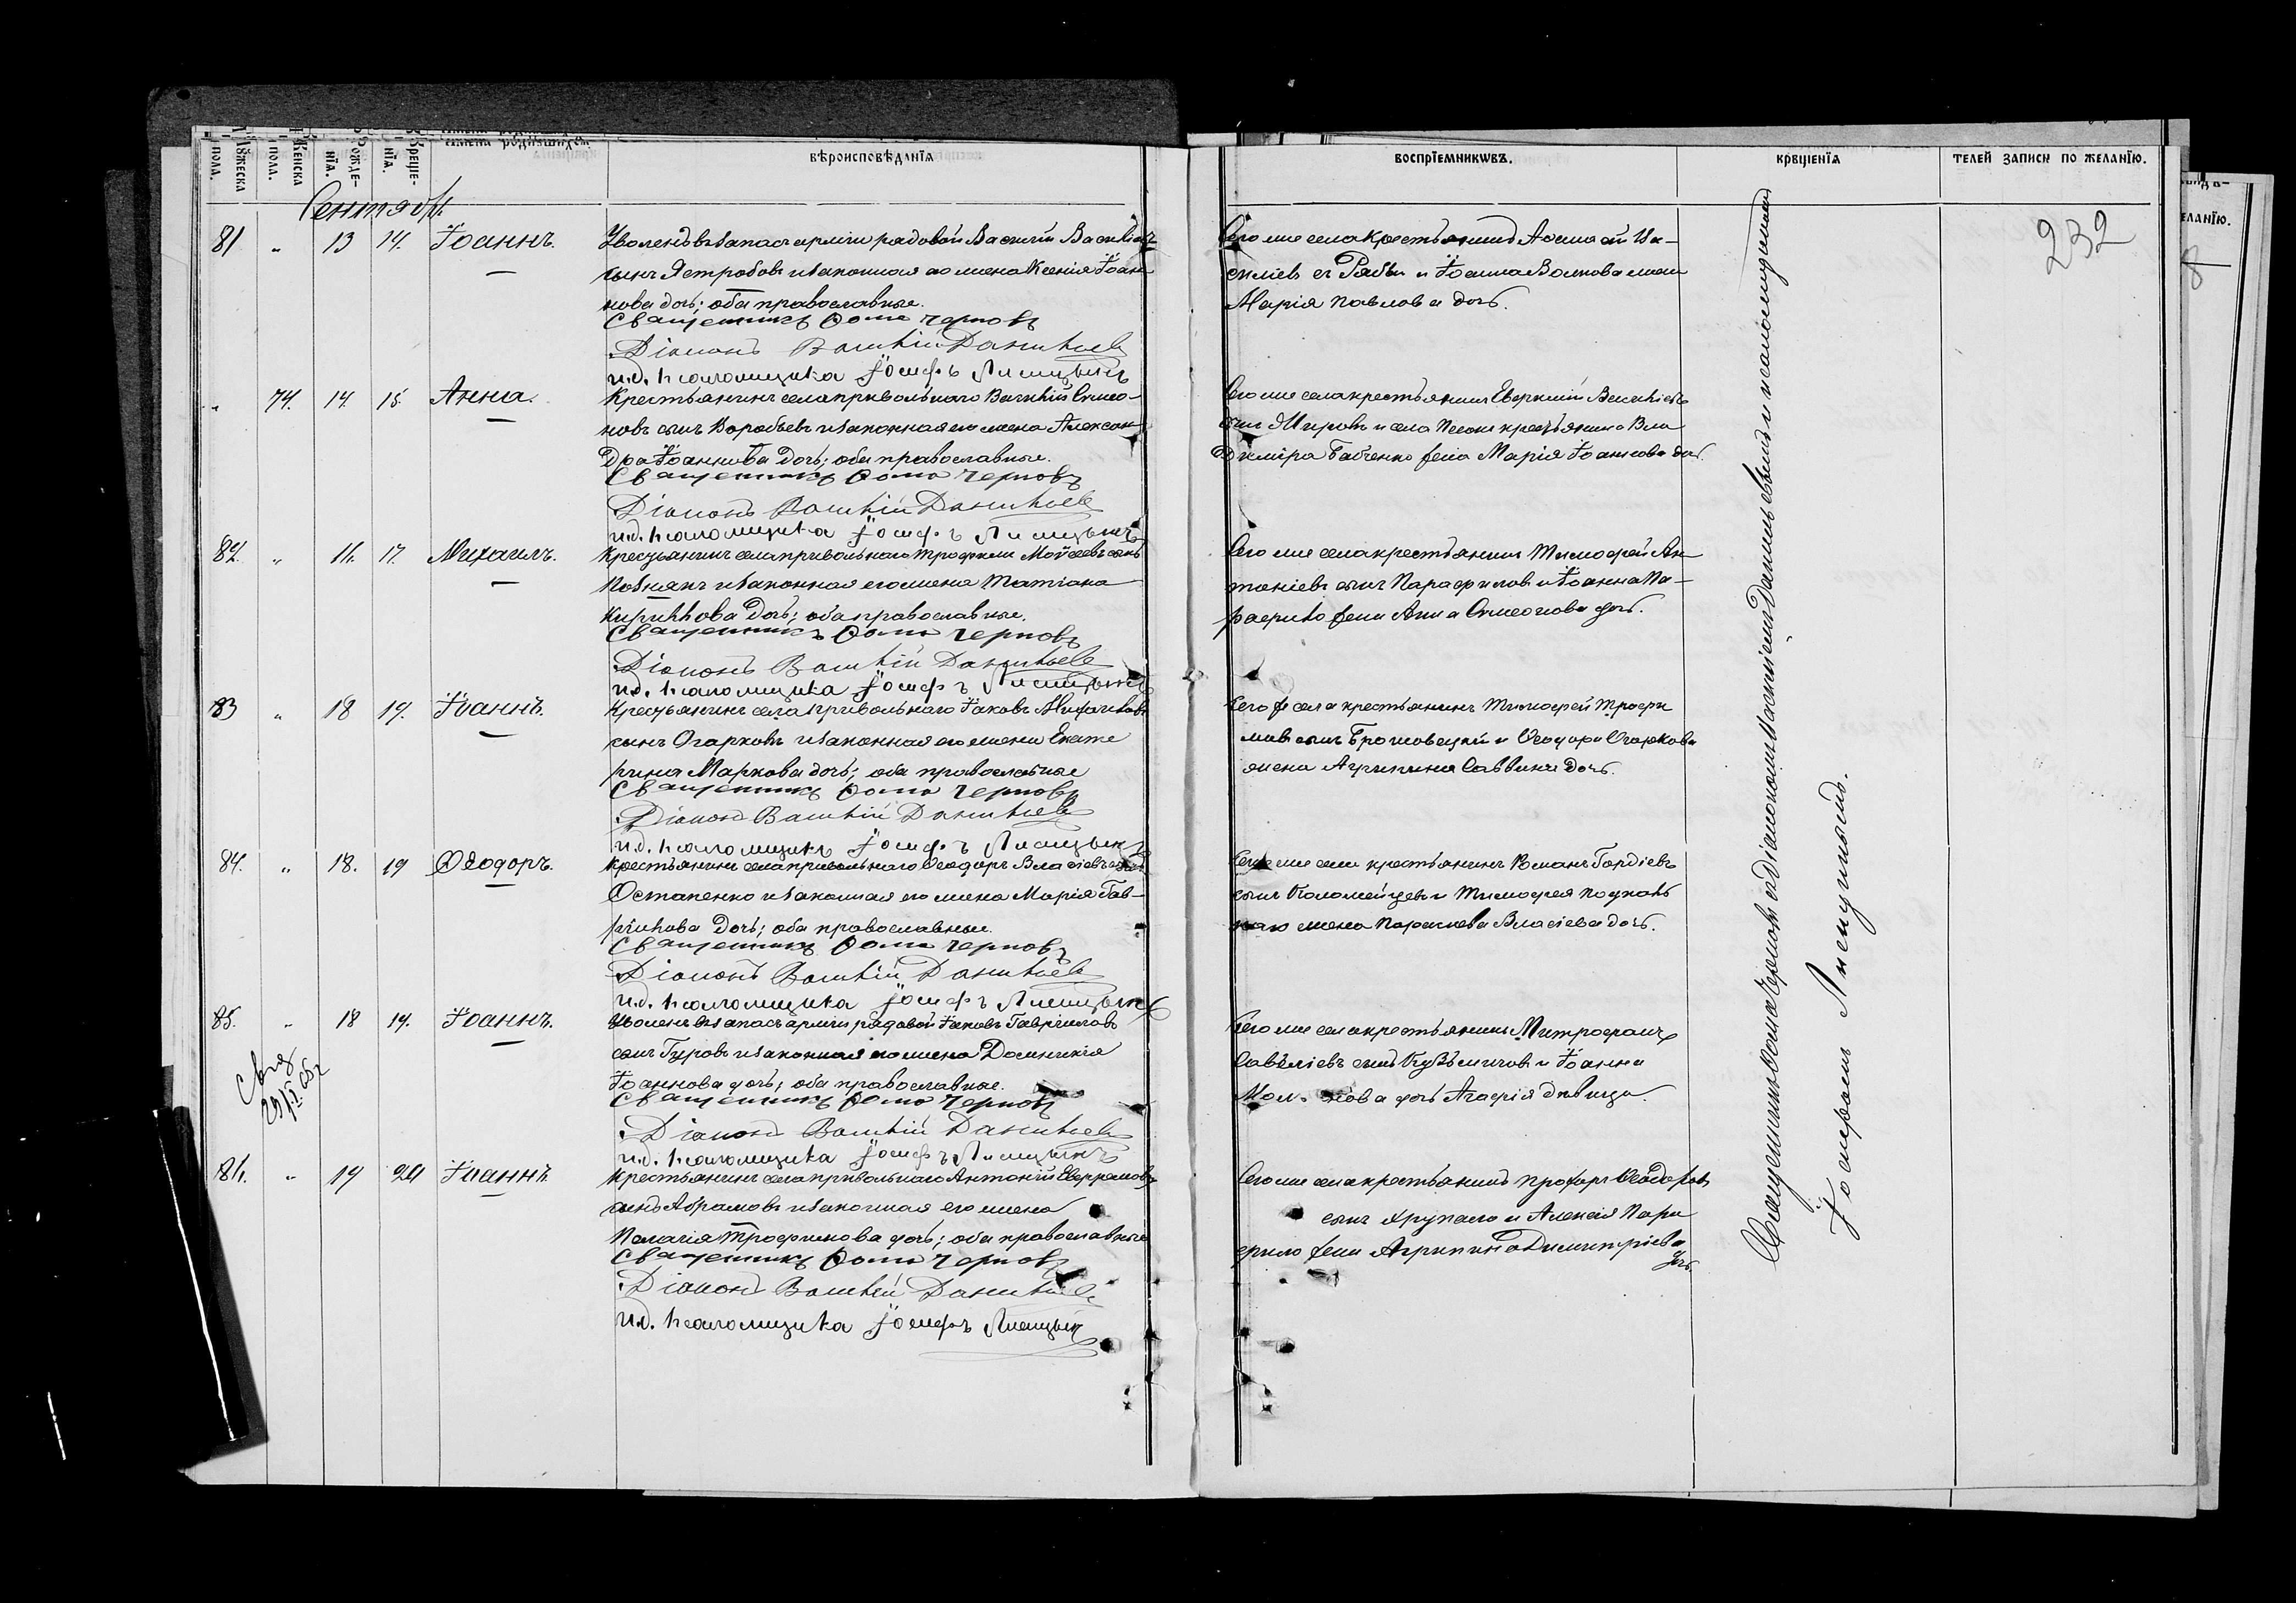 Мꙋжеска пола.
Женска пола.
Рожде-
нїя.
Креще-
нїя.
Имена родившихся
вѣроисповѣданїя
воспрїемникωвъ.
крещенїя
телей записи по желанїю.
Сентябрь
232
81 " 13 14. Іоаннъ.
Уволен. въ запасъ арміи рядовой Василій Васильевъ
сынъ Ястребовъ и законная его жена Ксенія Іоан
нова дочь; оба православные.
Священникъ Ѳома Черновъ
Діаконъ Василій Данильевъ
и.д. псаломщика Іосифъ Лисицынъ
Сего же села крестьянинъ
и Іоанна Волкова жена
Марія Павлова дочь.
" 74. 14. 15. Анна.
Крестьянинъ села Привольнаго Василій Симео-
новъ сынъ Воробьевъ и законная его жена Алексан
дра Іоаннова дочь; оба православные.
Священникъ Ѳома Черновъ
Діаконъ Василій Данильевъ
и.д. псаломщика Іосифъ Лисицынъ
Сего же села крестьянинъ Еверкій Васильевъ
сынъ Мировъ и села Пески крестьянина Вла
диміра Бабченко жена Марія Іоаннова доч.
82. " 16. 17. Михаилъ.
Крестьянинъ села Привольнаго Трофим Моѵсеевъ сынъ
Познякъ и законная его жена Татіана
Кириллова дочь; оба православные.
Священникъ Ѳома Черновъ
Діаконъ Василій Данильевъ
и.д. псаломщика Іосифъ Лисицынъ
Сего же села крестьянинъ Тимофей Ан
тоніевъ сынъ Парафиловъ и Іоанна Па-
рафило жена Анна Симеонова дочь.
83 " 18 19. Іоаннъ.
Крестьянинъ села Привольнаго Іаковъ Михаиловъ
сынъ Огарковъ и законная его жена Екате
рина Маркова дочь; оба православные
Священникъ Ѳома Черновъ
Діаконъ Василій Данильевъ
и.д. псаломщика Іосифъ Лисицынъ
Сего же села крестьянинъ Тимофей Трофи
мовъ сынъ и Ѳеодора Огаркова
жена Агрипина Саввина дочь.
84. " 18. 19 Ѳеодоръ.
Крестьянинъ села Привольнаго Ѳеодоръ Власіевъ сынъ
Остапенко и законная его жена Марія Гав-
ріилова дочь; оба православные.
Священникъ Ѳома Черновъ
Діаконъ Василій Данильевъ
и.д. псаломщика Іосифъ Лисицынъ
Сего же села крестьянинъ Романъ Гордіевъ
сынъ Коломейцевъ и Тимофея
жена Параскева Власіева дочь.
85. " 18 19. Іоаннъ.
Уволен. въ запасъ арміи рядовой Іаковъ Гавріиловъ
сынъ Гуровъ и законная его жена Домникія
Іоаннова дочь; оба православные.
Священникъ Ѳома Черновъ
Діаконъ Василій Данильевъ
и.д. псаломщика Іосифъ Лисицынъ
Сего же села крестьянинъ Митрофанъ
Савеліевъ сынъ Кузьмичовъ и Іоанна
дочь Агафія девица.
86. " 19 20 Іоаннъ.
Крестьянинъ села Привольнаго Антоній Ефремовъ
сынъ Абрамовъ и законная его жена
Пелагія Трофимова дочь; оба православные
Священникъ Ѳома Черновъ
Діаконъ Василій Данильевъ
и.д. псаломщика Іосифъ Лисицынъ
Сего же села крестьянинъ Прохоръ Ѳеодоровъ
сынъ и Алексія Пара
фило жена Агрипина Димитріева
дочь.
Священникъ Ѳома Черновъ съ Діакономъ Василіемъ Данильевымъ и псаломщикомъ
Іосифомъ Лисицынымъ.